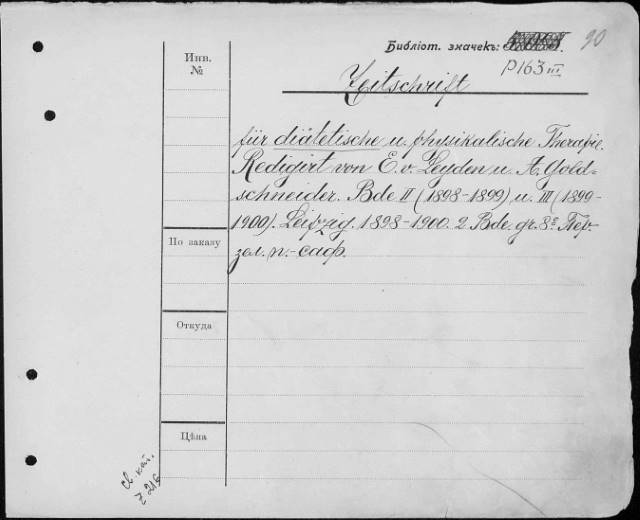 Библіот. значекъ:
90
P163 III
Инв.
№
Zeitschrift
für diätetische u. physikalische Therapie.
Redigirt von E. v. Leyden u. A. Gold-
schneider. Bde II (1898-1899) u. III (1899-
1900). Leipzig. 1898-1900. 2 Bde. gr. 8º Пер.
зел. п.-саф.
По заказу
Откуда
Цѣна
сл. кат.
Z 216